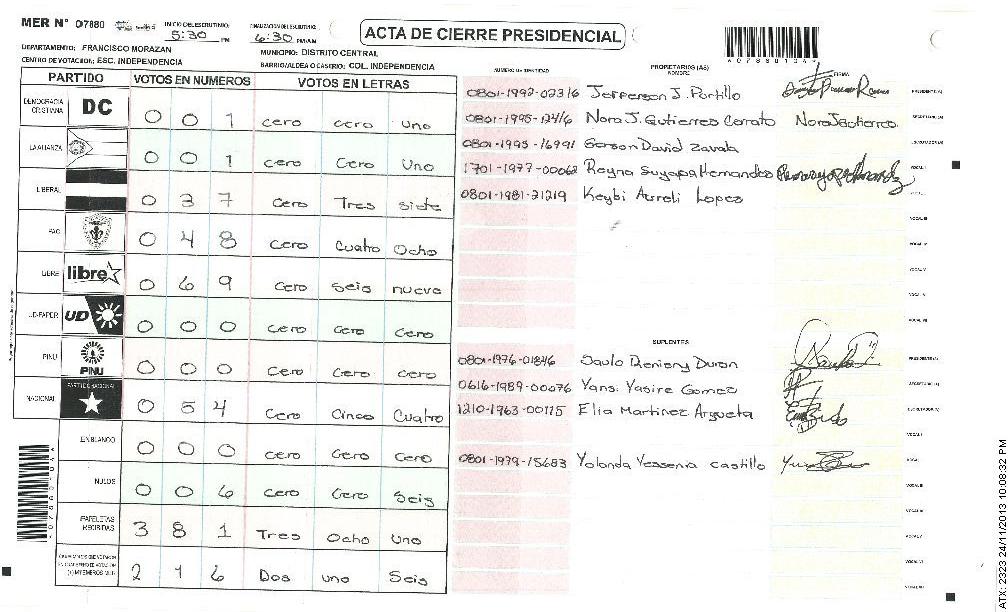 MER N° 07880 INICIO DEL ESCRUTINIO: 5:30 PM FINALIZACION DEL ESCRUTINIO: 6:30 PM/AM
ACTA DE CIERRE PRESIDENCIAL
DEPARTAMENTO: FRANCISCO MORAZAN MUNICIPIO: DISTRITO CENTRAL
CENTRO DE VOTACION: ESC. INDEPENDENCIA BARRIO/ALDEA O CASERIO: COL. INDEPENDENCIA
PARTIDO VOTOS EN NUMEROS VOTOS EN LETRAS
DEMOCRACIA CRISTIANA DC 0 0 1 cero cero uno
LA ALIANZA 0 0 1 cero Cero Uno
LIBERAL 0 3 7 cero Tres siete
PAC 0 4 8 cero Cuatro Ocho
LIBRE libre 0 6 9 Cero Seis nueve
UD-FAPER UD 0 0 0 Cero Cero Cero
PINU PINU 0 0 0 Cero Cero cero
NACIONAL PARTIDO NACIONAL 0 5 4 Cero Cinco Cuatro
EN BLANCO 0 0 0 Cero Cero Cero
NULOS 0 0 6 Cero Cero Seis
PAPELETAS RECIBIDAS 3 8 1 Tres Ocho Uno
2 1 6 Dos uno Seis
NUMERO DE IDENTIDAD PROPIETARIOS (AS) NOMBRE FIRMA
0801-1992-02316 Jefferson J. Portillo PRESIDENTE(A)
0801-1995-12416 Nora J. Gutierres Corrato Nora J Gutierres SECRETARIO(A)
0801-1995-16991 Gerson David Zavala ESCRUTADOR(A)
1701-1977-00062 Reyna Suyapa Hernandes VOCAL I
0801-1981-21219 Keybi Aureli Lopez
VOCAL III
VOCAL IV
VOCAL V
VOCAL VI
VOCAL VII
SUPLENTES
0801-1976-01846 Saulo Reniery Duron PRESIDENTE(A)
0616-1989-00076 Yansi Yasire Gomez SECRETARIO(A)
1210-1963-00115 Elia Martinez Argueta ESCRUTADOR(A)
VOCAL I
0801-1979-15683 Yolanda Yessenia Castillo
VOCAL III
VOCAL V
VOCAL VI
VOCAL VII
ATX: 2323 24/11/2013 10:08:32 PM